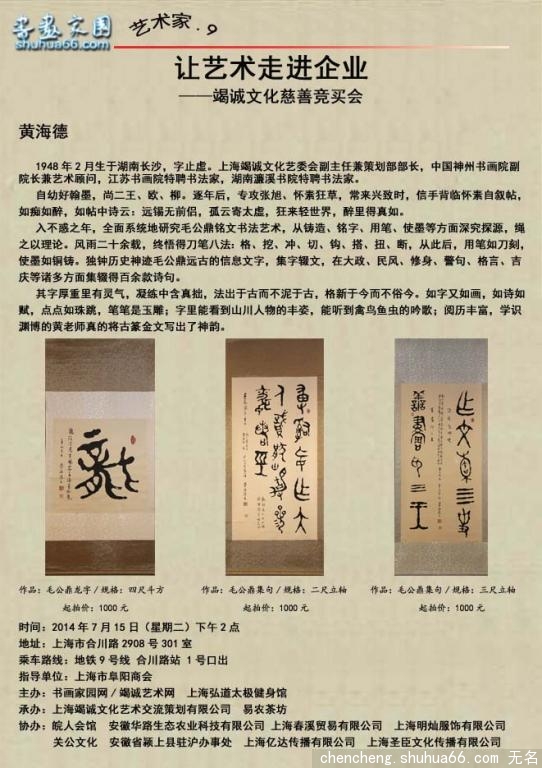 书画家园
shuhua66.com
艺术家.9
让艺术走进企业
——竭诚文化慈善竞买会
黄海德
1948年2月生于湖南长沙，字止虚。上海竭诚文化艺委会副主任兼策划部部长，中国神州书画院副
院长兼艺术顾问，江苏书画院特聘书法家，湖南濂溪书院特聘书法家。
自幼好翰墨，尚二王、欧、柳。逐年后，专攻张旭、怀素狂草，常来兴致时，信手背临怀素自叙帖，
如痴如醉，如帖中诗云：远锡无前侣，孤云寄太虚，狂来轻世界，醉里得真如。
入不惑之年，全面系统地研究毛公鼎铭文书法艺术，从铸造、铭字、用笔、使墨等方面深究探源，绳
之以理论。风雨二十余载，终悟得刀笔八法：格、挖、冲、切、钩、搭、扭、断，从此后，用笔如刀刻，
使墨如铜铸。独钟历史神迹毛公鼎远古的信息文字，集字辍文，在大政、民风、修身、警句、格言、吉
庆等诸多方面集辍得百余款诗句。
其字厚重里有灵气，凝练中含真拙，法出于古而不泥于古，格新于今而不俗今。如字又如画，如诗如
赋，点点如珠跳，笔笔是玉雕；字里能看到山川人物的丰姿，能听到禽鸟鱼虫的吟歌；阅历丰富，学识
渊博的黄老师真的将古篆金文写出了神韵。
作品：毛公鼎龙字/规格：四尺斗方
起拍价：1000元
作品：毛公鼎集句/规格：二尺立轴
起拍价：1000元
作品：毛公鼎集句/规格：三尺立轴
起拍价：1000元
时间：2014年7月15日（星期二）下午2点
地址：上海市合川路2908号301室
乘车路线：地铁9号线 合川路站 1号口出
指导单位：上海市阜阳商会
主办：书画家园网/竭诚艺术网 上海弘道太极健身馆
承办：上海竭诚文化艺术交流策划有限公司 易农茶坊
协办：皖人会馆 安徽华路生态农业科技有限公司 上海春溪贸易有限公司 上海明灿服饰有限公司
关公文化 安徽省颍上县驻沪办事处 上海亿达传播有限公司 上海圣臣文化传播有限公司
chencheng.shuhua66.com 无名